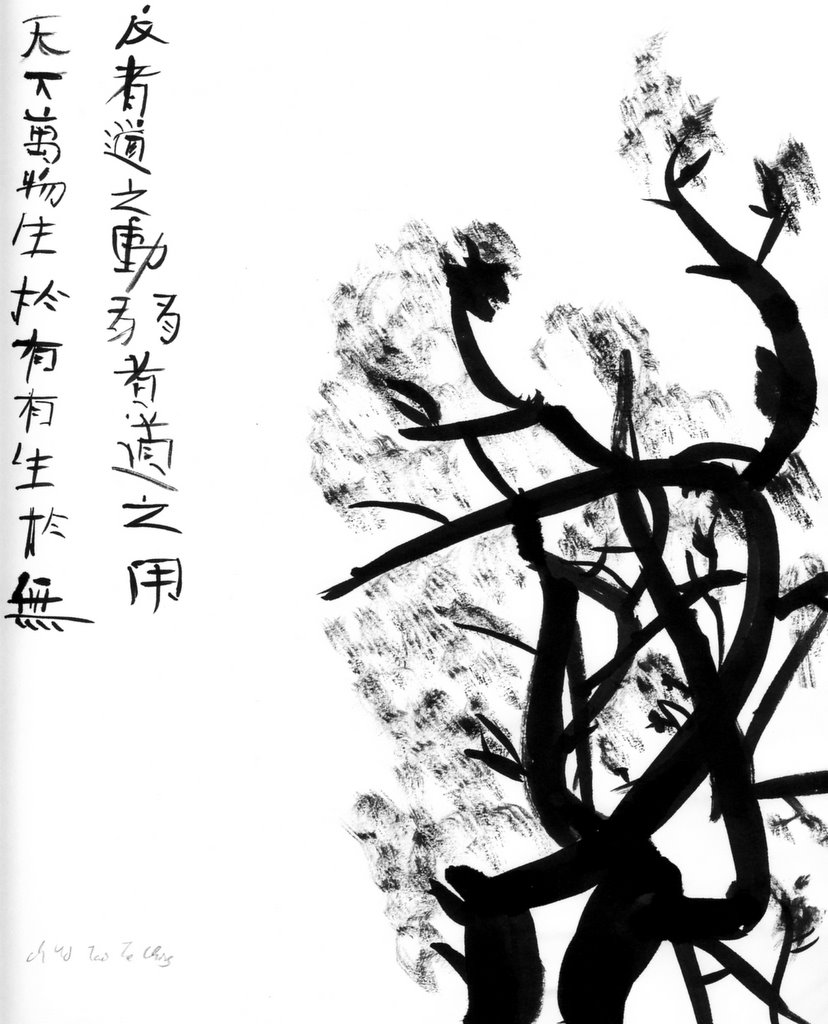 反者道之動弱者道之用
天下萬物生於有有生於無
ch 40 Tao Te Ching